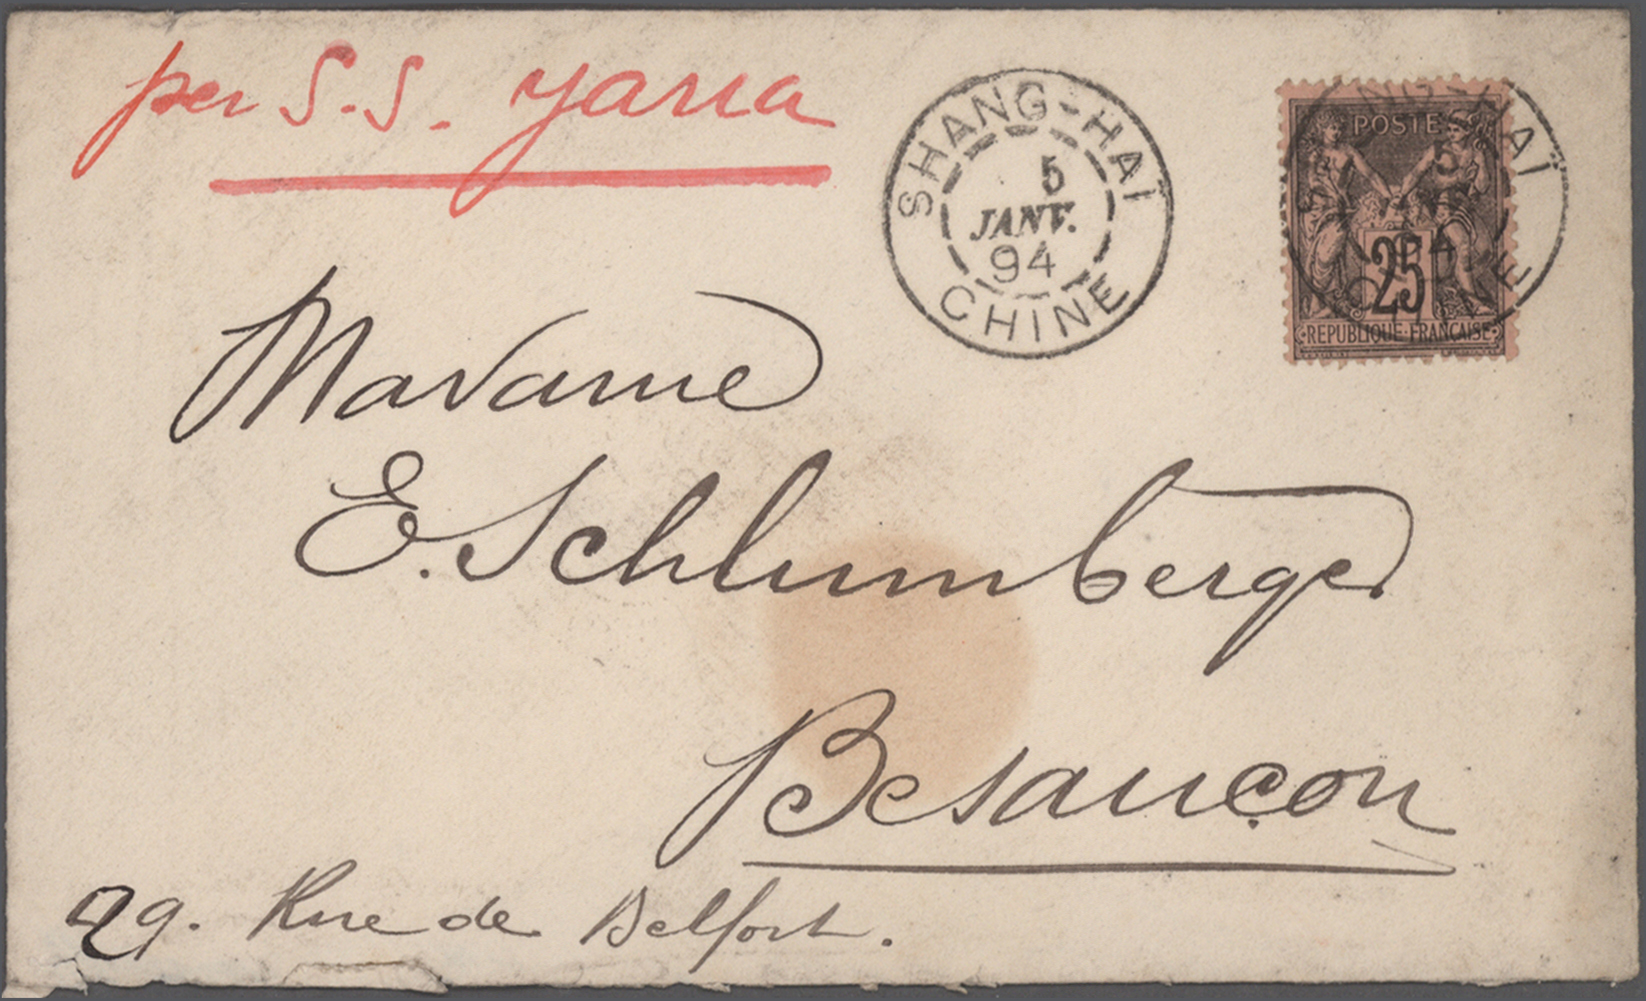 per S.S. Yarra
SHANG-HAÏ
5
JANV.
94
CHINE
POSTE
25
REPUBLIQUE FRANÇAISE
SHANG-HAÏ
5
JANV.
94
CHINE
Madame
E. Schlumberger
Besançon
29. Rue de Belfort.